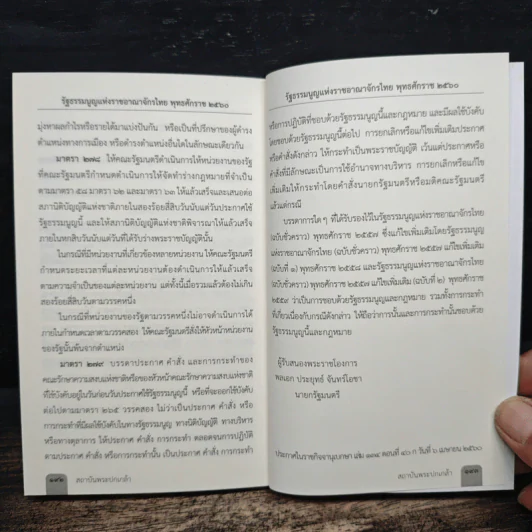 รัฐธรรมนูญแห่งราชอาณาจักรไทย พุทธศักราช ๒๕๖๐
มุ่งหาผลกำไรหรือรายได้มาแบ่งปันกัน หรือเป็นที่ปรึกษาของผู้ดำรง
ตำแหน่งทางการเมือง หรือดำรงตำแหน่งอื่นใดในลักษณะเดียวกัน
มาตรา ๒๗๘ ให้คณะรัฐมนตรีดำเนินการให้หน่วยงานของรัฐ
ที่คณะรัฐมนตรีกำหนดดำเนินการให้จัดทำร่างกฎหมายที่จำเป็น
ตามมาตรา ๕๘ มาตรา ๖๒ และมาตรา ๖๓ ให้แล้วเสร็จและเสนอต่อ
สภานิติบัญญัติแห่งชาติภายในสองร้อยสี่สิบวันนับแต่วันประกาศใช้
รัฐธรรมนูญนี้ และให้สภานิติบัญญัติแห่งชาติพิจารณาให้แล้วเสร็จ
ภายในหกสิบวันนับแต่วันที่ได้รับร่างพระราชบัญญัตินั้น
ในกรณีที่มีหน่วยงานที่เกี่ยวข้องหลายหน่วยงาน ให้คณะรัฐมนตรี
กำหนดระยะเวลาที่แต่ละหน่วยงานต้องดำเนินการให้แล้วเสร็จ
ตามความจำเป็นของแต่ละหน่วยงาน แต่ทั้งนี้เมื่อรวมแล้วต้องไม่เกิน
สองร้อยสี่สิบวันตามวรรคหนึ่ง
ในกรณีที่หน่วยงานของรัฐตามวรรคหนึ่งไม่อาจดำเนินการได้
ภายในกำหนดเวลาตามวรรคสอง ให้คณะรัฐมนตรีสั่งให้หัวหน้าหน่วยงาน
ของรัฐนั้นพ้นจากตำแหน่ง
มาตรา ๒๗๙ บรรดาประกาศ คำสั่ง และการกระทำของ
คณะรักษาความสงบแห่งชาติหรือของหัวหน้าคณะรักษาความสงบแห่งชาติ
ที่ใช้บังคับอยู่ในวันก่อนวันประกาศใช้รัฐธรรมนูญนี้ หรือที่จะออกใช้บังคับ
ต่อไปตามมาตรา ๒๖๕ วรรคสอง ไม่ว่าเป็นประกาศ คำสั่ง หรือ
การกระทำที่มีผลใช้บังคับในทางรัฐธรรมนูญ ทางนิติบัญญัติ ทางบริหาร
หรือทางตุลาการ ให้ประกาศ คำสั่ง การกระทำ ตลอดจนการปฏิบัติ
ตามประกาศ คำสั่ง หรือการกระทำนั้น เป็นประกาศ คำสั่ง การกระทำ
สถาบันพระปกเกล้า
รัฐธรรมนูญแห่งราชอาณาจักรไทย พุทธศักราช ๒๕๖๐
หรือการปฏิบัติที่ชอบด้วยรัฐธรรมนูญนี้และกฎหมาย และมีผลใช้บังคับ
โดยชอบด้วยรัฐธรรมนูญนี้ต่อไป การยกเลิกหรือแก้ไขเพิ่มเติมประกาศ
หรือคำสั่งดังกล่าว ให้กระทำเป็นพระราชบัญญัติ เว้นแต่ประกาศหรือ
คำสั่งที่มีลักษณะเป็นการใช้อำนาจทางบริหาร การยกเลิกหรือแก้ไข
เพิ่มเติมให้กระทำโดยคำสั่งนายกรัฐมนตรีหรือมติคณะรัฐมนตรี
แล้วแต่กรณี
บรรดาการใด ๆ ที่ได้รับรองไว้ในรัฐธรรมนูญแห่งราชอาณาจักรไทย
(ฉบับชั่วคราว) พุทธศักราช ๒๕๕๗ ซึ่งแก้ไขเพิ่มเติมโดยรัฐธรรมนูญ
แห่งราชอาณาจักรไทย (ฉบับชั่วคราว) พุทธศักราช ๒๕๕๗ แก้ไขเพิ่มเติม
(ฉบับที่ ๑) พุทธศักราช ๒๕๕๘ และรัฐธรรมนูญแห่งราชอาณาจักรไทย
(ฉบับชั่วคราว) พุทธศักราช ๒๕๕๗ แก้ไขเพิ่มเติม (ฉบับที่ ๒) พุทธศักราช
๒๕๕๙ ว่าเป็นการชอบด้วยรัฐธรรมนูญและกฎหมาย รวมทั้งการกระทำ
ที่เกี่ยวเนื่องกับกรณีดังกล่าว ให้ถือว่าการนั้นและการกระทำนั้นชอบด้วย
รัฐธรรมนูญนี้และกฎหมาย
ผู้รับสนองพระราชโองการ
พลเอก ประยุทธ์ จันทร์โอชา
นายกรัฐมนตรี
ประกาศในราชกิจจานุเบกษา เล่ม ๑๓๔ ตอนที่ ๔๐ ก วันที่ ๖ เมษายน ๒๕๖๐
สถาบันพระปกเกล้า